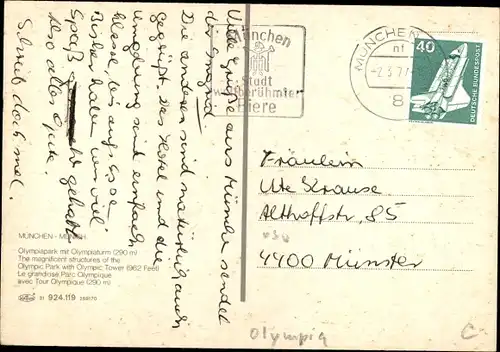 Viele Grüße aus München sendet
dir Ingrid
Die anderen sind natürlich auch
gegrüßt. Das Hotel und die
Umgebung sind einfach
klasse, bis aufs
Bisher haben wir viel
Spaß gehabt
Also alles Gute.
Schreib doch mal.
MÜNCHEN - MUNICH
Olympiapark mit Olympiaturm (290 m)
The magnificent structures of the
Olympic Park with Olympic Tower (962 Feet)
Le grandiose Parc Olympique
avec Tour Olympique (290 m)
51 924.119
München
Stadt
weltberühmter
Biere
MÜNCHEN
nf
8
40
DEUTSCHE BUNDESPOST
Fräulein
Ute Krause
Althoffstr. 85
4400 Münster
Olympia
C